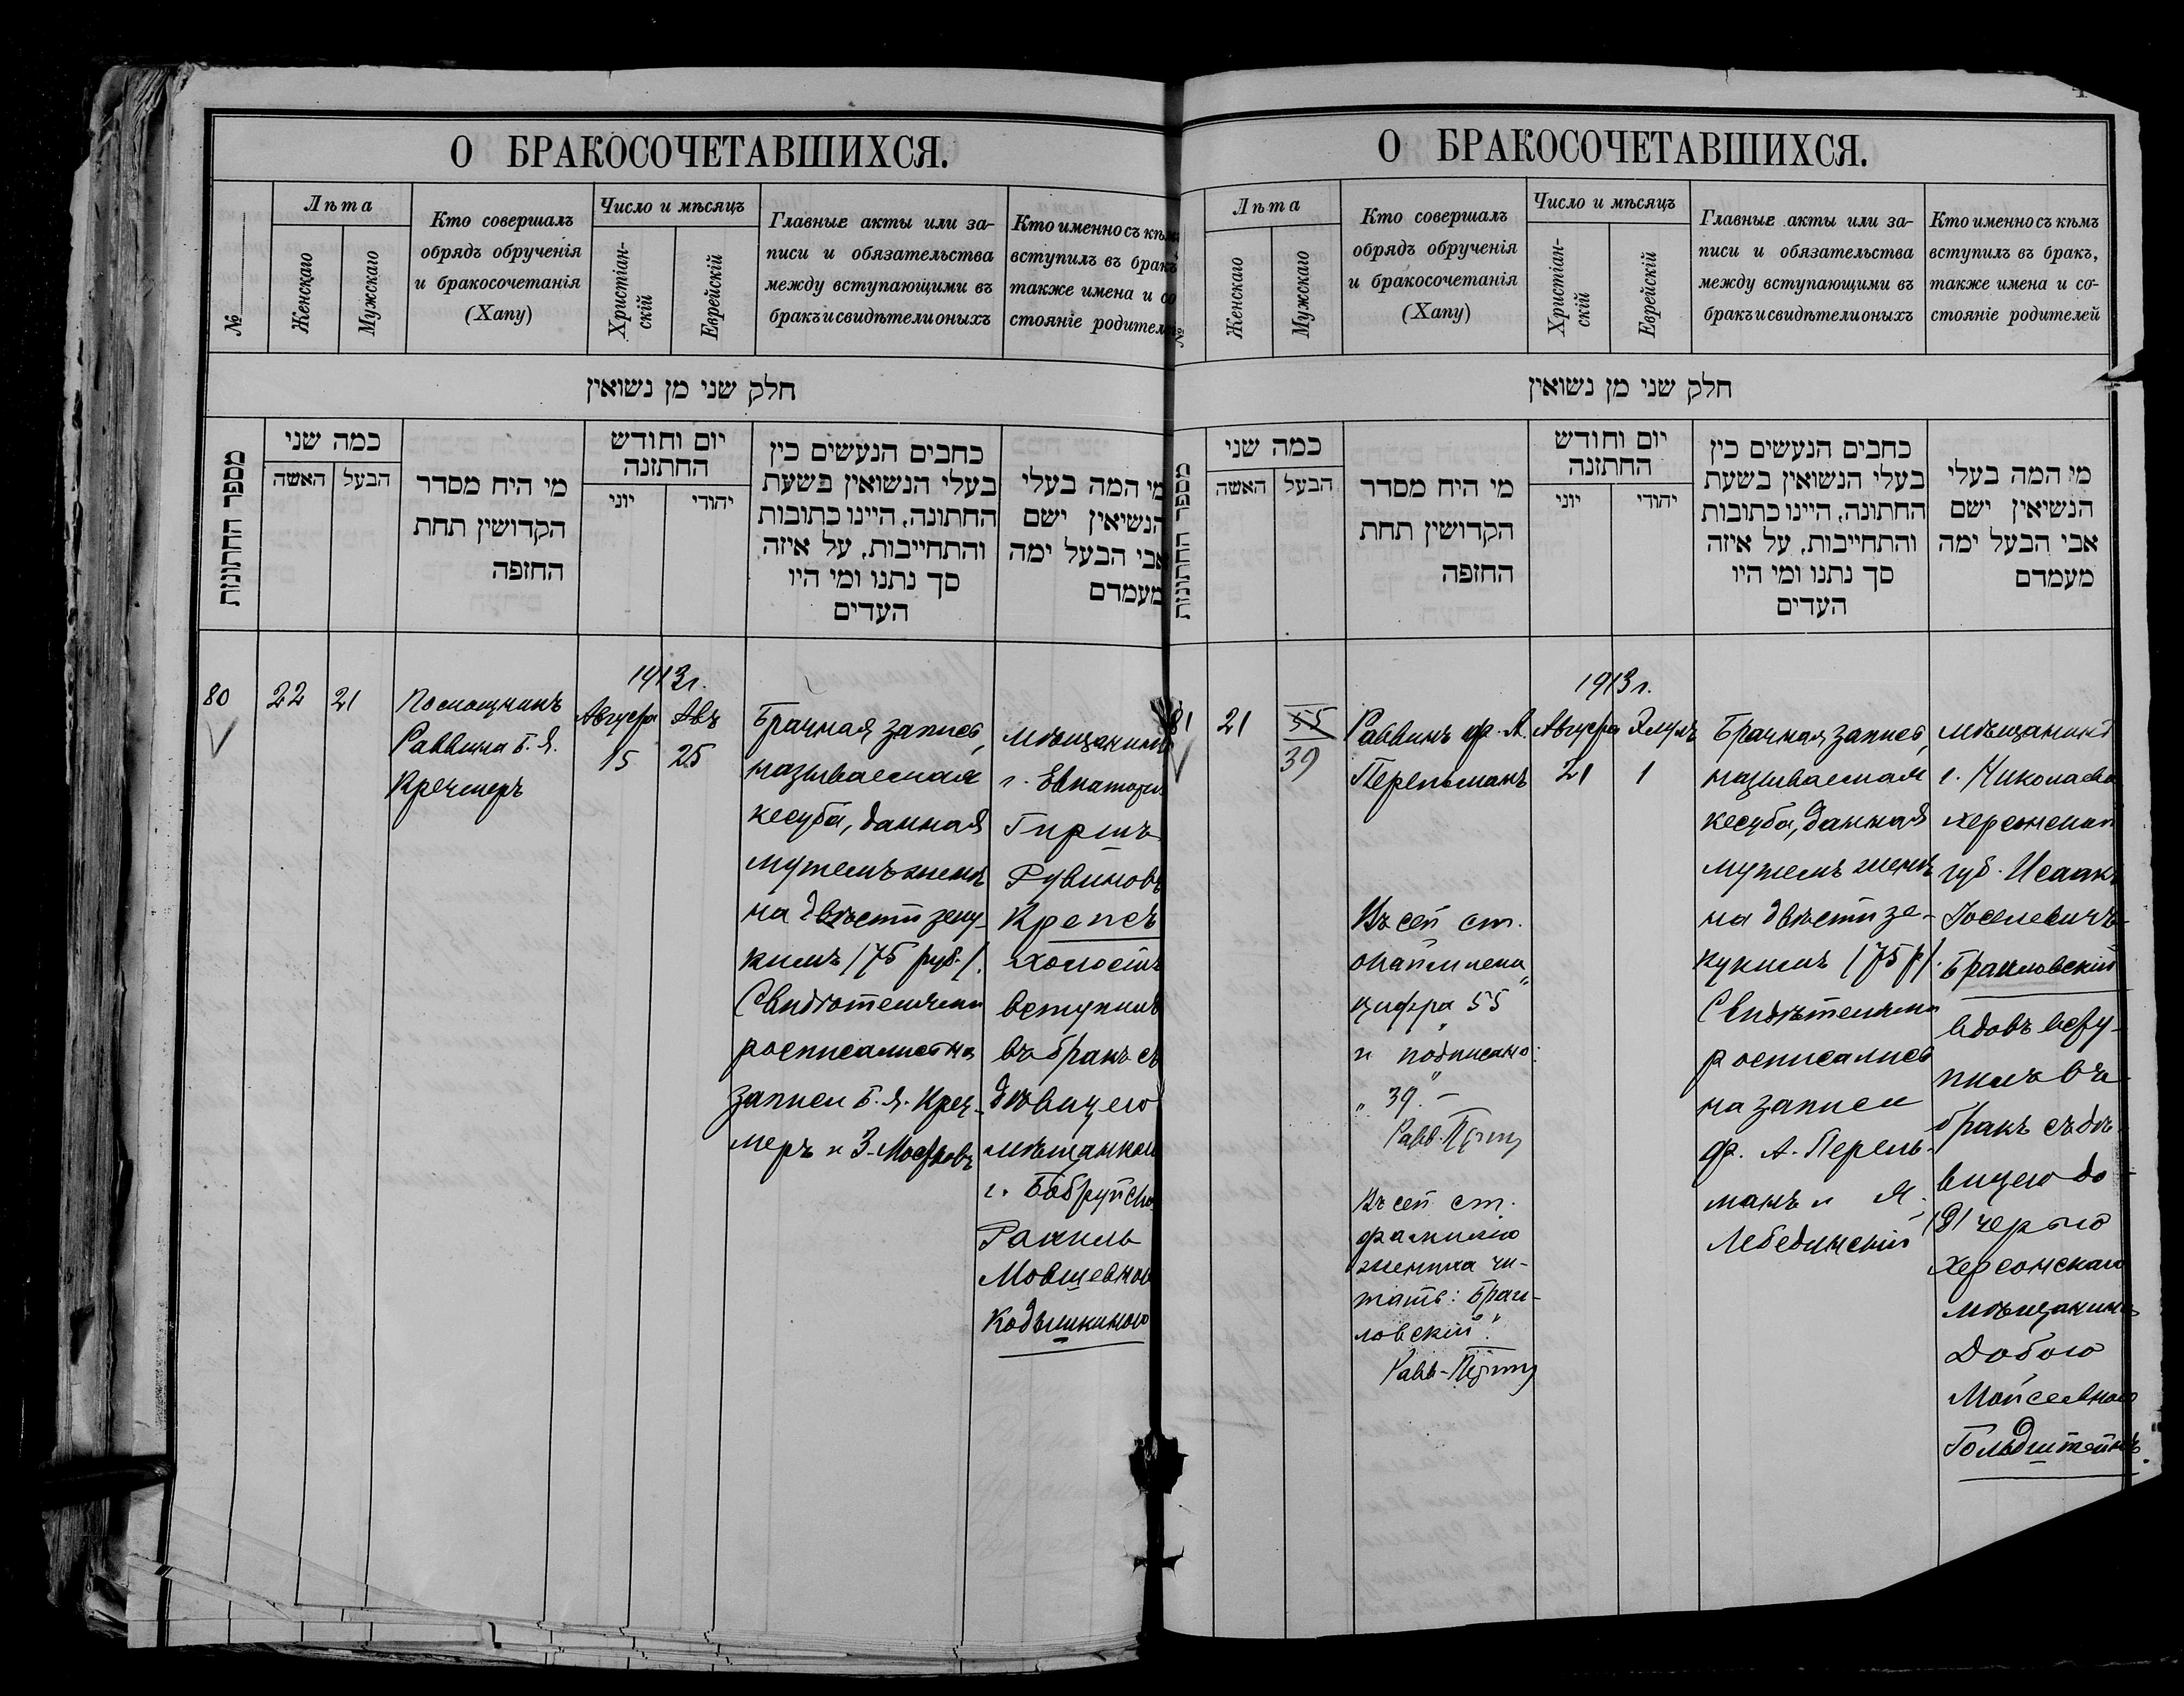 О БРАКОСОЧЕТАВШИХСЯ.
№
Лѣта
Женскаго
Мужскаго
Кто совершалъ
обрядъ обрученія
и бракосочетанія
(Хапу)
Число и мѣсяцъ
Христіан-
скій
Еврейскій
Главные акты или за-
писи и обязательства
между вступающими въ
бракъ и свидѣтели оныхъ
Кто именно съ кѣмъ
вступилъ въ бракъ
также имена и со
стояніе родителе
חלק שני מן נשואין
מספר החתונות
כמה שני
האשה
הבעל
מי היח מסדר
הקדושין תחת
החזפה
יום וחודש
החתזנה
יוני
יהודי
כחבים הנעשים כין
בעלי הנשואין בשעת
החתונה, היינו כתובות
והתחייבות, על איזה
סך נתנו ומי היו
העדים
מי המה בעלי
הנשיאין ישם
אבי הבעל ימה
מעמדם
80
22
21
Помощникъ
Раввина Б. Я.
Кречмеръ
1913 г.
Августа
15
Авъ
25
Брачная запись,
называемая
кесуба, данная
мужемъ женѣ
на двѣсти зеку-
кимъ /75 руб./.
Свидѣтелями
росписались на
записи Б. Я. Креч-
меръ и З. Мостковъ
Мѣщанинъ
г. Евпаторіи
Гиршъ
Рувиновъ
Крепсъ
холостъ
вступилъ
въ бракъ съ
дѣвицею
мѣщанкой
г. Бобруйска
Рахиль
Мовшевной
Кодѣшкиною
О БРАКОСОЧЕТАВШИХСЯ.
№
Лѣта
Женскаго
Мужскаго
Кто совершалъ
обрядъ обрученія
и бракосочетанія
(Хапу)
Число и мѣсяцъ
Христіан-
скій
Еврейскій
Главные акты или за-
писи и обязательства
между вступающими въ
бракъ и свидѣтели оныхъ
Кто именно съ кѣмъ
вступилъ въ бракъ,
также имена и со-
стояніе родителей
חלק שני מן נשואין
מספר החתונות
כמה שני
האשה
הבעל
מי היח מסדר
הקדושין תחת
החזפה
יום וחודש
החתזנה
יוני
יהודי
כחבים הנעשים כין
בעלי הנשואין בשעת
החתונה, היינו כתובות
והתחייבות, על איזה
סך נתנו ומי היו
העדים
מי המה בעלי
הנשיאין ישם
אבי הבעל ימה
מעמדם
81
21
55
39
Раввинъ Ф. А.
Перельманъ
1913 г.
Августа
21
Элулъ
1
Въ сей ст.
цифра 55"
и подписано:
„39". –
Равв.
Въ сей ст.
фамилію
жениха чи-
тать: Браи-
ловскій".
Равв.
Брачная запись,
называемая
кесуба, данная
мужемъ женѣ
на двѣсти зе-
кукимъ /75 р/.
Свидѣтелями
росписались
на записи
Ф. А. Перель-
манъ и Я.
Лебединскій
мѣщанинъ
г. Николаева
херсонской
губ. Исаакъ
Іоселевичъ
Браиловскій
вдовъ всту-
пилъ въ
бракъ съ дѣ-
вицею до-
/д/ черью
херсонскаго
мѣщанина
Добою
Мойсеевною
Гольдштейнъ.